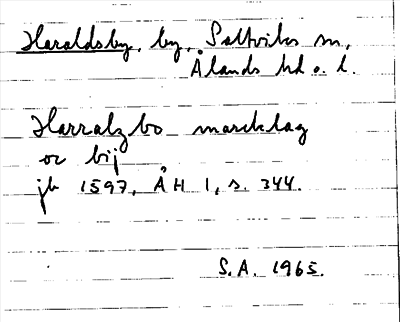 Haraldsby, by, Saltviks sn,
Ålands hd o. l.
Harralzbo marcklag
oc bij
jb 1597, ÅH 1, s. 344.
S.A. 1965.